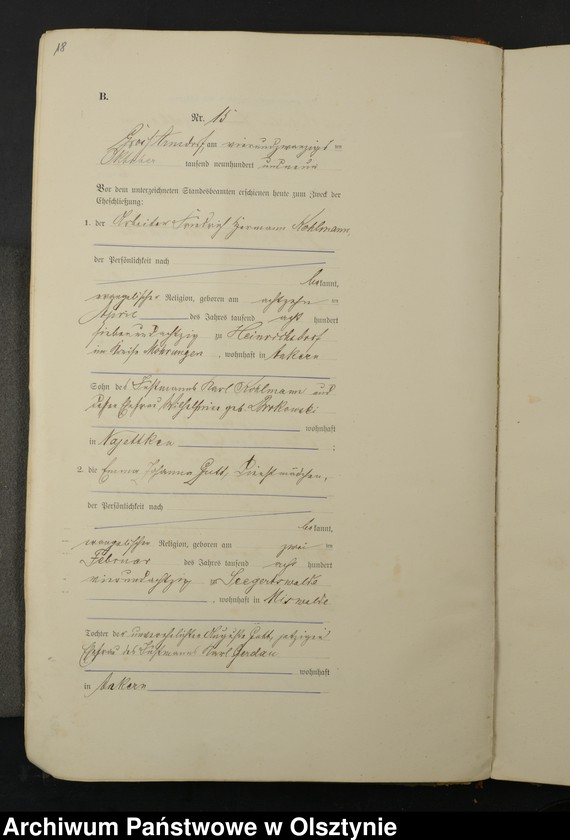 18
B.
Nr. 15
Groß Arnsdorf, am vierundzwanzigsten
Oktober tausend neunhundert undneun
Vor dem unterzeichneten Standesbeamten erschienen heute zum Zweck der
Eheschließung:
1. der Arbeiter Friedrich Hermann Kohlmann
der Persönlichkeit nach
bekannt,
evangelischer Religion, geboren am achtzehnten
April des Jahres tausend acht hundert
siebenundachtzig zu Heinrichsdorf
im Kreise Mohrungen, wohnhaft in
Sohn des Instmanns Karl Kohlmann und
dessen Ehefrau Wilhelmine geb.
wohnhaft
in
2. die Emma Johanna Gutt, Dienstmädchen,
der Persönlichkeit nach
bekannt,
evangelischer Religion, geboren am zweiten
Februar des Jahres tausend acht hundert
vierundachtzig zu Seegertswalde
, wohnhaft in Miswalde
Tochter der unverehelichten Auguste Gutt, jetzigen
Ehefrau des Instmanns Karl Gerdau
wohnhaft
in
Archiwum Państwowe w Olsztynie